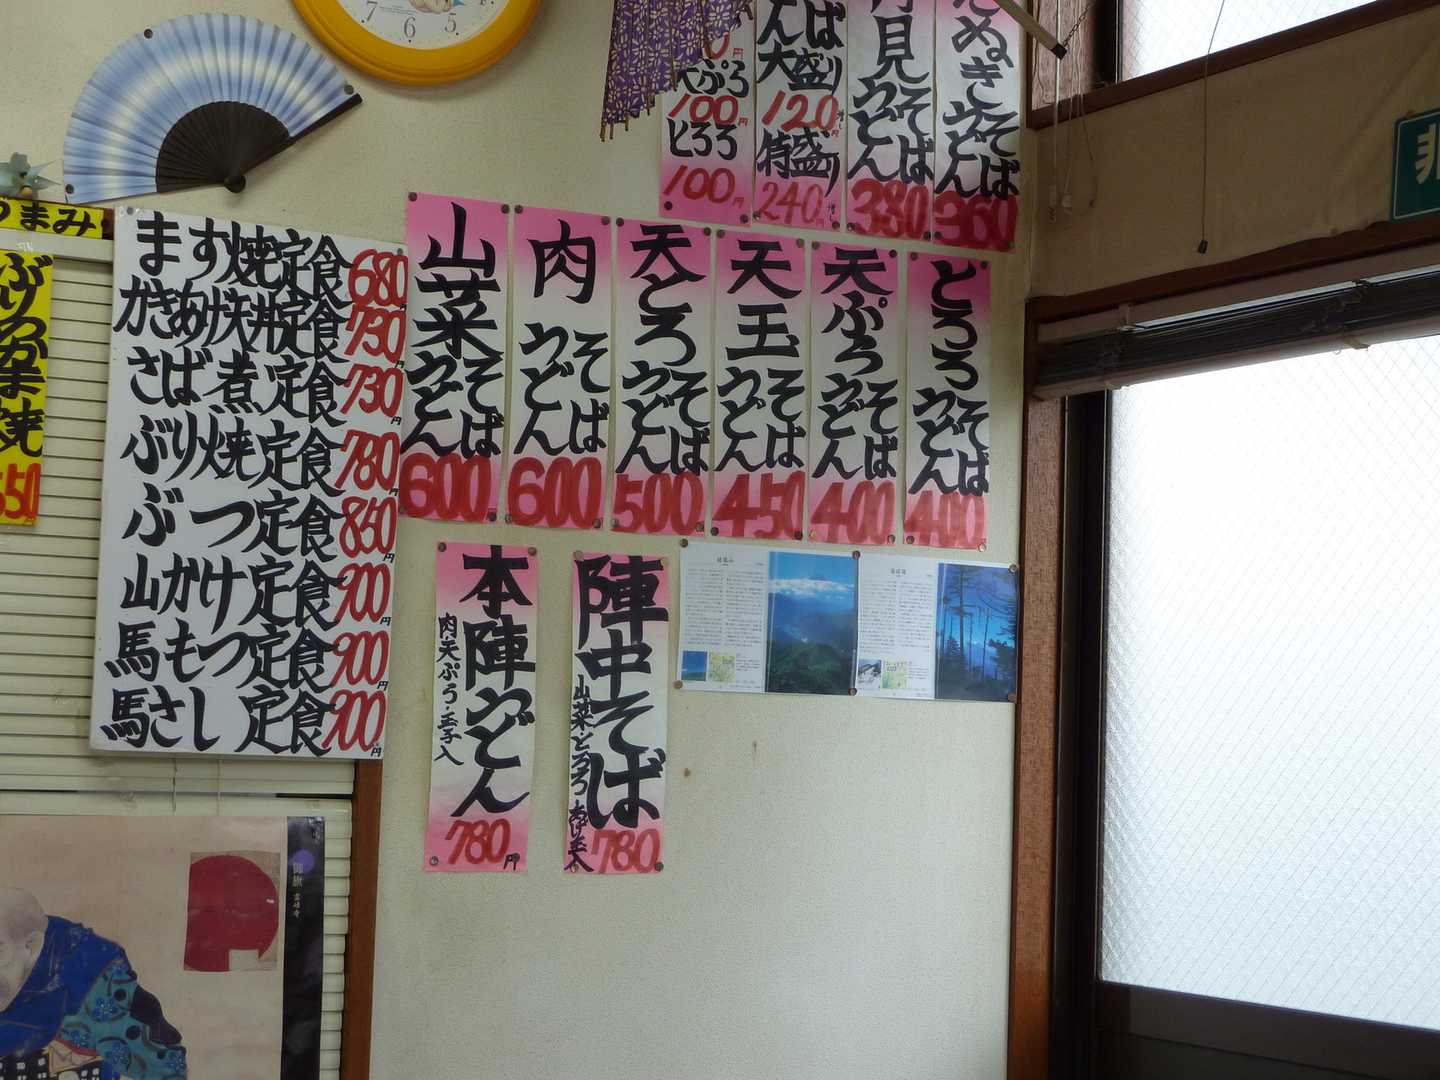 7
6
5
うまみ
ぶりカマ焼
550
ます焼定食 680
かきあげ丼定食 730円
さば煮定食 730円
ぶり焼定食 780円
ぶつ定食 850円
山かけ定食 900円
馬もつ定食 900円
馬さし定食 900円
天ぷら
100円
とろろ
100円
大盛り
120円増し
特盛り
240円増し
月見そばうどん
380
たぬきそばうどん
360
山菜そばうどん
600
肉そばうどん
600
天とろそばうどん
500
天玉そばうどん
450
天ぷらそばうどん
400
とろろそばうどん
400
本陣うどん
肉・天ぷら・玉子入
780円
陣中そば
山菜・とろろ
780
御旗 雲峰寺
非